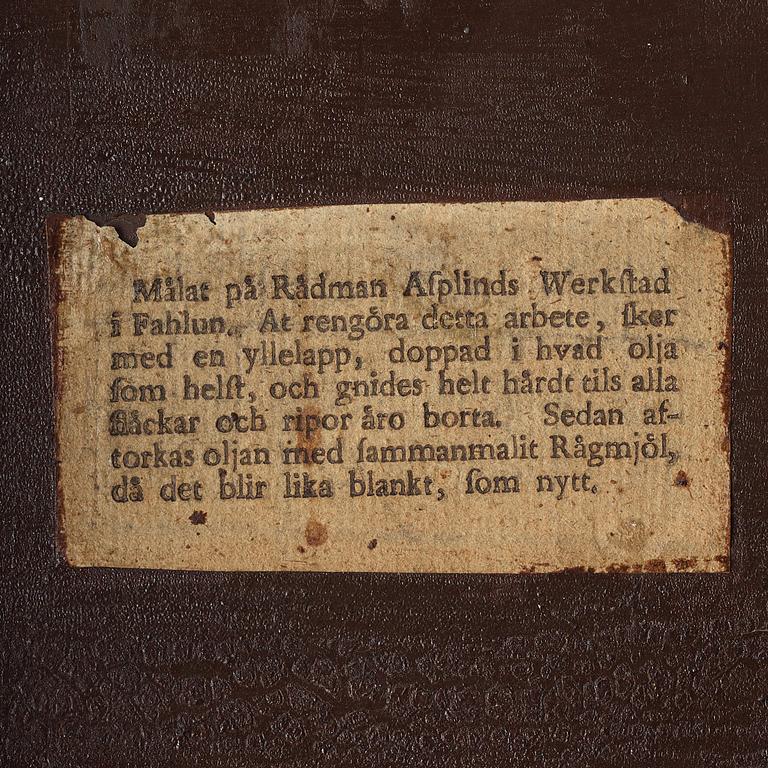 Målat på Rådman Aſplinds Werkſtad
i Fahlun. At rengöra detta arbete, ſker
med en yllelapp, doppad i hvad olja
ſom helſt, och gnides helt hårdt tils alla
fläckar och ripor äro borta. Sedan af-
torkas oljan med ſammanmalit Rågmjöl,
då det blir lika blankt, ſom nytt.